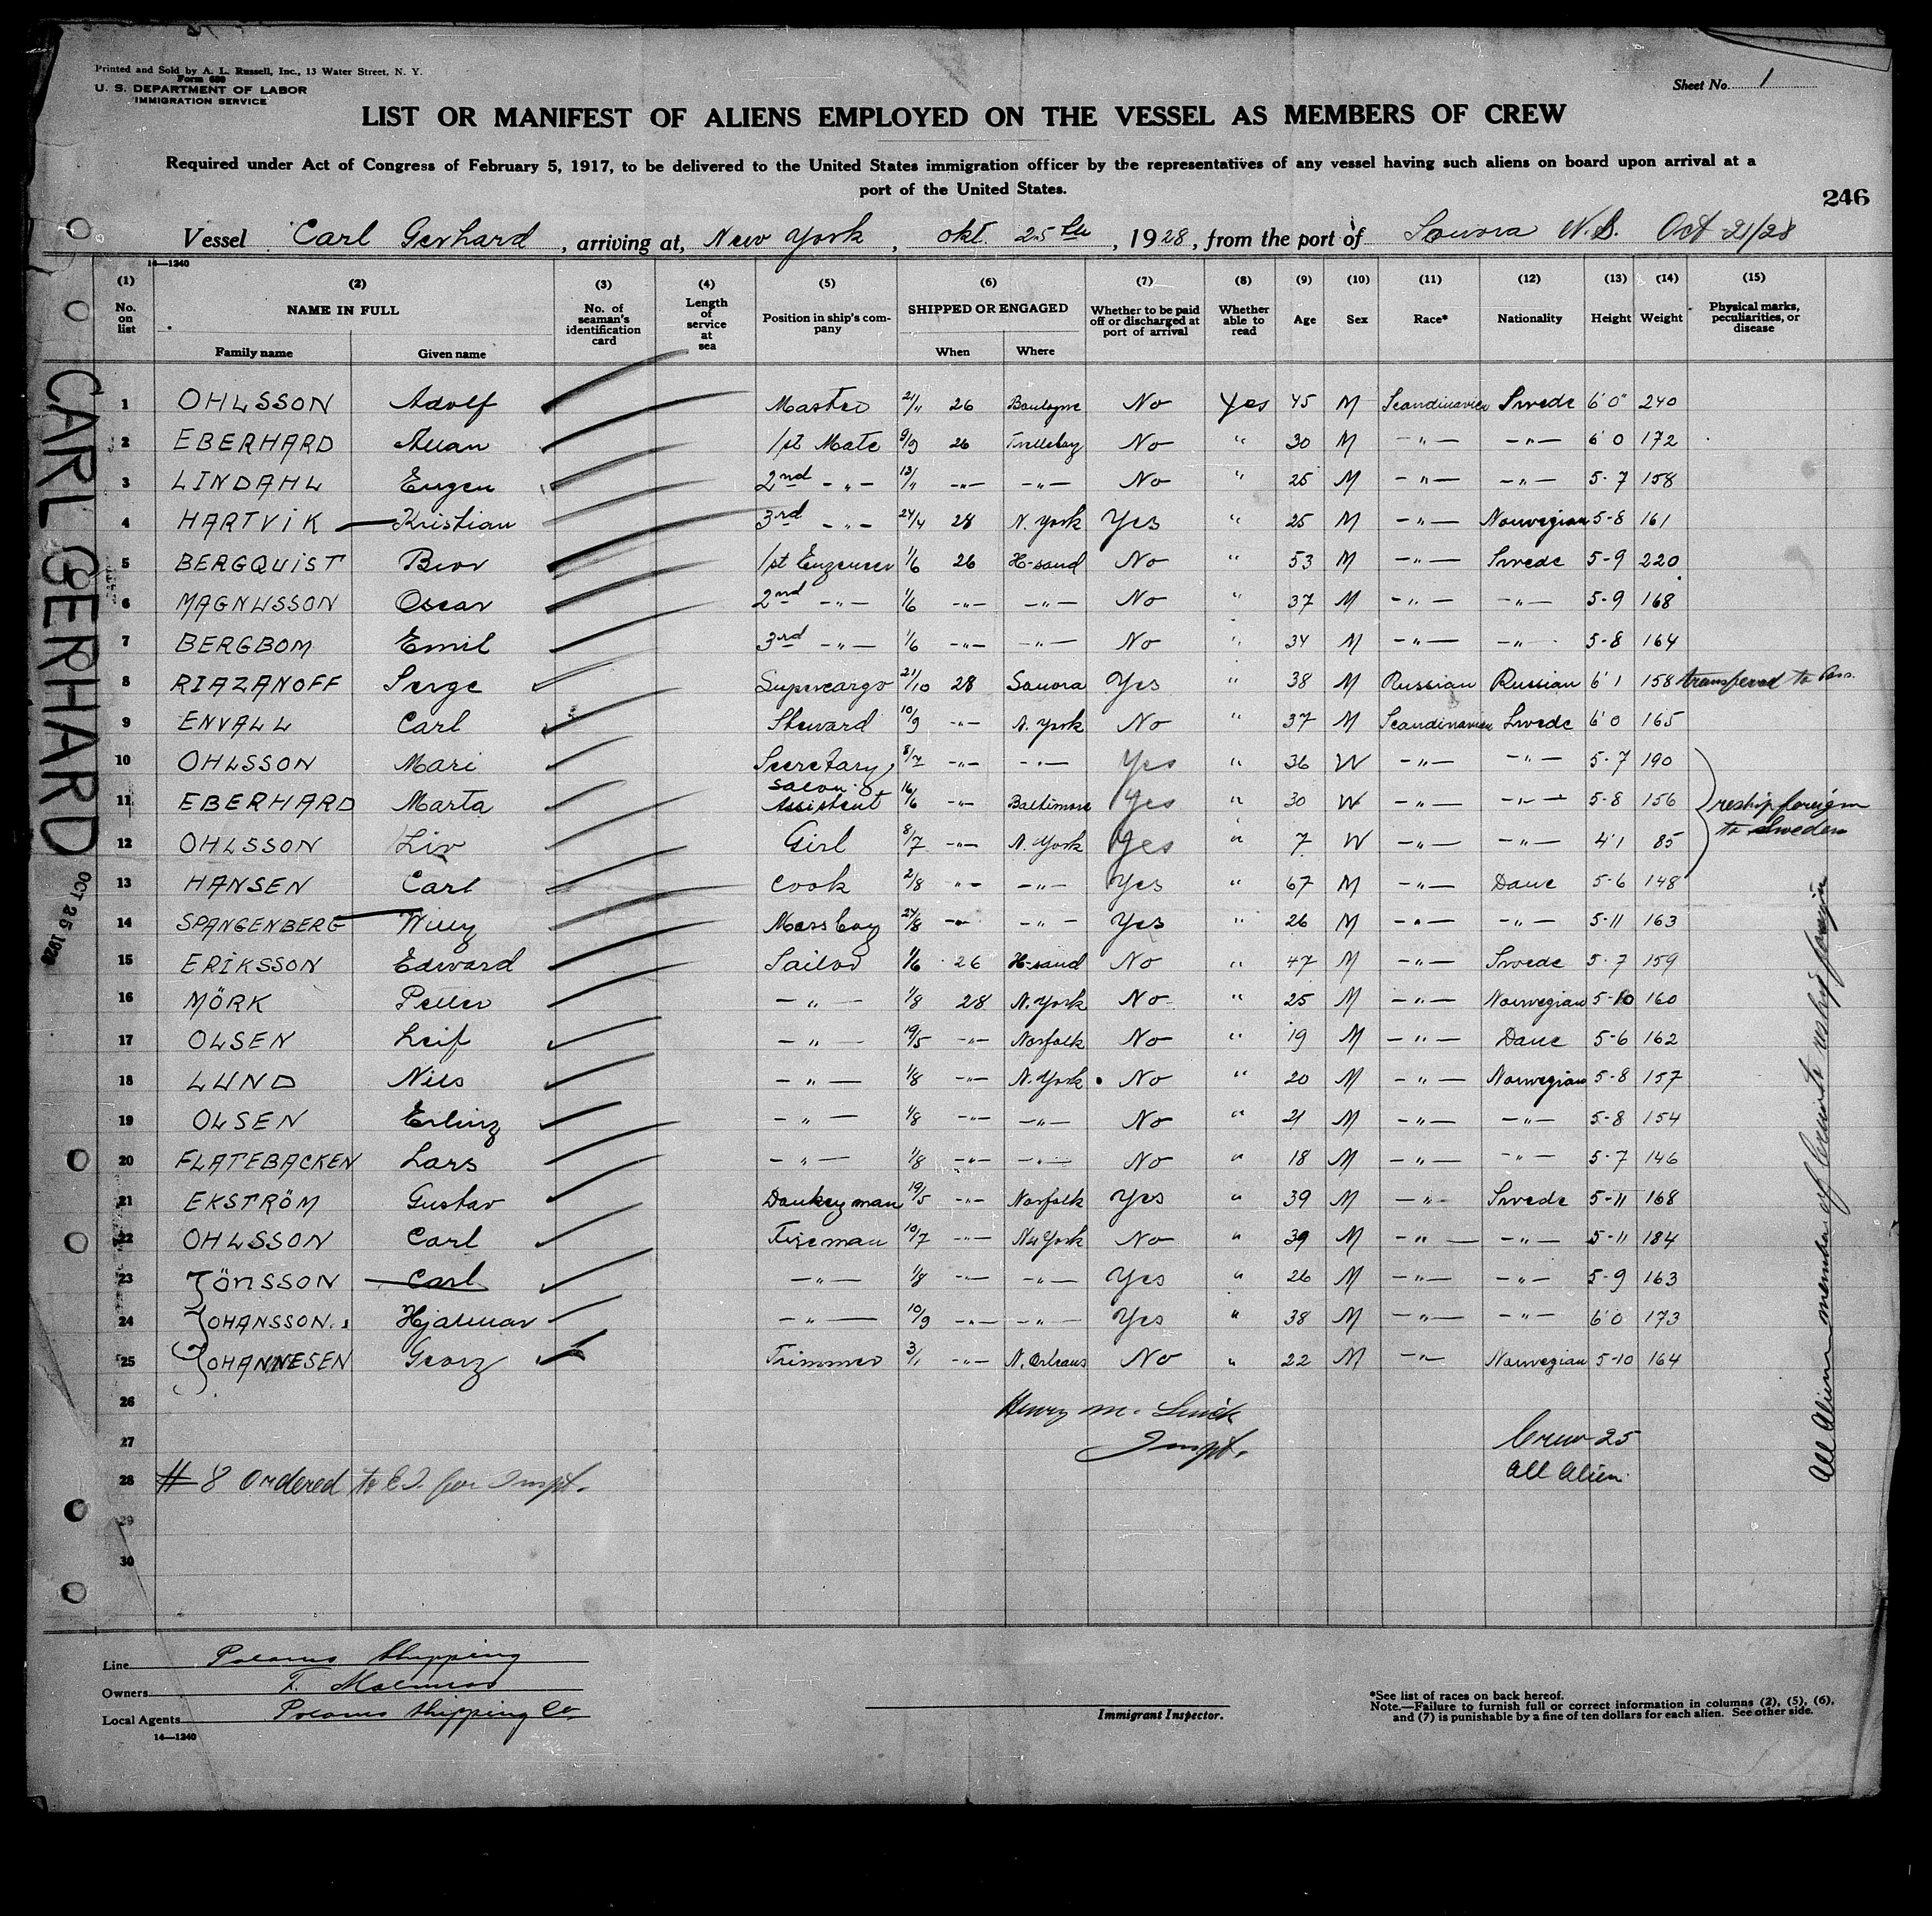 Printed and Sold by A. L. Russell, Inc., 13 Water Street, N. Y.
Form 680
U. S. DEPARTMENT OF LABOR
IMMIGRATION SERVICE
Sheet No. 1
LIST OR MANIFEST OF ALIENS EMPLOYED ON THE VESSEL AS MEMBERS OF CREW
Required under Act of Congress of February 5, 1917, to be delivered to the United States immigration officer by the representatives of any vessel having such aliens on board upon arrival at a
port of the United States.
246
Vessel Carl Gerhard, arriving at, New York, okt. 25th, 1928, from the port of Louora N.S. Oct 21/28
14—1240
(1) (2) (3) (4) (5) (6) (7) (8) (9) (10) (11) (12) (13) (14) (15)
No. on list NAME IN FULL Family name Given name No. of seaman's identification card Length of service at sea Position in ship's company SHIPPED OR ENGAGED When Where Whether to be paid off or discharged at port of arrival Whether able to read Age Sex Race* Nationality Height Weight Physical marks, peculiarities, or disease
1 OHLSSON Adolf Master 2/11 26 Boulogne No Yes 45 M Scandinavien Swede 6'0" 240
2 EBERHARD Allan 1st Mate 9/9 26 Trelleborg No " 30 M —"— —"— 6'0 172
3 LINDAHL Eugen 2nd —"— 13/11 —"— —"— No " 25 M —"— —"— 5-7 158
4 HARTVIK Kristian 3rd —"— 24/4 28 N. York Yes " 25 M —"— Norwegian 5-8 161
5 BERGQUIST Bror 1st Engeneer 1/6 26 H-sand No " 53 M —"— Swede 5-9 220
6 MAGNUSSON Oscar 2nd —"— 1/6 —"— —"— No " 37 M —"— —"— 5-9 168
7 BERGBOM Emil 3rd —"— 1/6 —"— —"— No " 34 M —"— —"— 5-8 164
8 RIAZANOFF Serge Supercargo 21/10 28 Louora Yes " 38 M Russian Russian 6'1 158 transfered to Pass.
9 ENVALL Carl Steward 10/9 —"— N. York No " 37 M Scandinavien Swede 6'0 165
10 OHLSSON Mari Secretary 8/7 —"— —"— Yes " 36 W —"— —"— 5-7 190
11 EBERHARD Marta Salon Assistent 16/6 —"— Baltimore Yes " 30 W —"— —"— 5-8 156 reship foreign
12 OHLSSON Liv Girl 8/7 —"— N. York Yes " 7 W —"— —"— 4'1 85 to Sweden
13 HANSEN Carl Cook 2/8 —"— —"— Yes " 67 M —"— Dane 5-6 148
14 SPANGENBERG Willy Messboy 24/8 —"— —"— Yes " 26 M —"— —"— 5-11 163
15 ERIKSSON Edward Sailor 1/6 26 H-sand No " 47 M —"— Swede 5-7 159
16 MÖRK Petter —"— 1/8 28 N. York No " 25 M —"— Norwegian 5-10 160
17 OLSEN Leif —"— 19/5 —"— Norfolk No " 19 M —"— Dane 5-6 162
18 LUND Nils —"— 1/8 —"— N. York No " 20 M —"— Norwegian 5-8 157
19 OLSEN Erling —"— 1/8 —"— —"— No " 21 M —"— —"— 5-8 154
20 FLATEBACKEN Lars —"— 1/8 —"— —"— No " 18 M —"— —"— 5-7 146
21 EKSTRÖM Gustav Donkeyman 19/5 —"— Norfolk Yes " 39 M —"— Swede 5-11 168
22 OHLSSON Carl Fireman 10/7 —"— New York No " 39 M —"— —"— 5-11 184
23 JÖNSSON Carl —"— 1/8 —"— —"— Yes " 26 M —"— —"— 5-9 163
24 JOHANSSON Hjalmar —"— 10/9 —"— —"— Yes " 38 M —"— —"— 6'0 173
25 JOHANNESEN Georg Trimmer 3/1 —"— N. Orleans No " 22 M —"— Norwegian 5-10 164
26 Henry M.
27 Inspt. Crew 25
28 #8 Ordered to E.I. for Inspt. All Alien
29
30
All Alien members of Crew to reship foreign
CARL GERHARD
OCT 25 1928
Line Shipping
Owners
Local Agents Shipping Co
14—1240
Immigrant Inspector.
*See list of races on back hereof.
Note.—Failure to furnish full or correct information in columns (2), (5), (6),
and (7) is punishable by a fine of ten dollars for each alien. See other side.